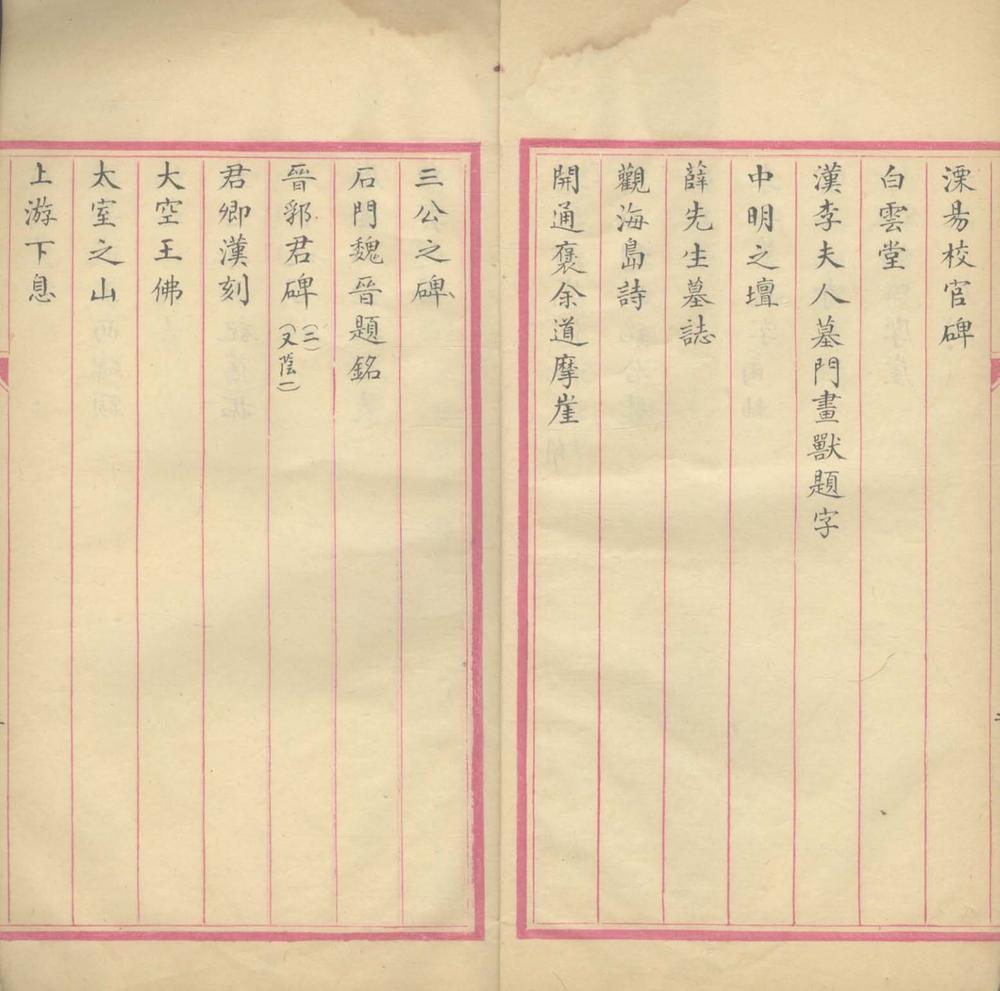 溧昜校官碑
白雲堂
漢李夫人墓門畫獸題字
中明之壇
薛先生墓誌
觀海島詩
開通褒余道摩崖
三公之碑
石門魏晉題銘
晉郛君碑(二)(又陰一)
君卿漢刻
大空王佛
太室之山
上游下息